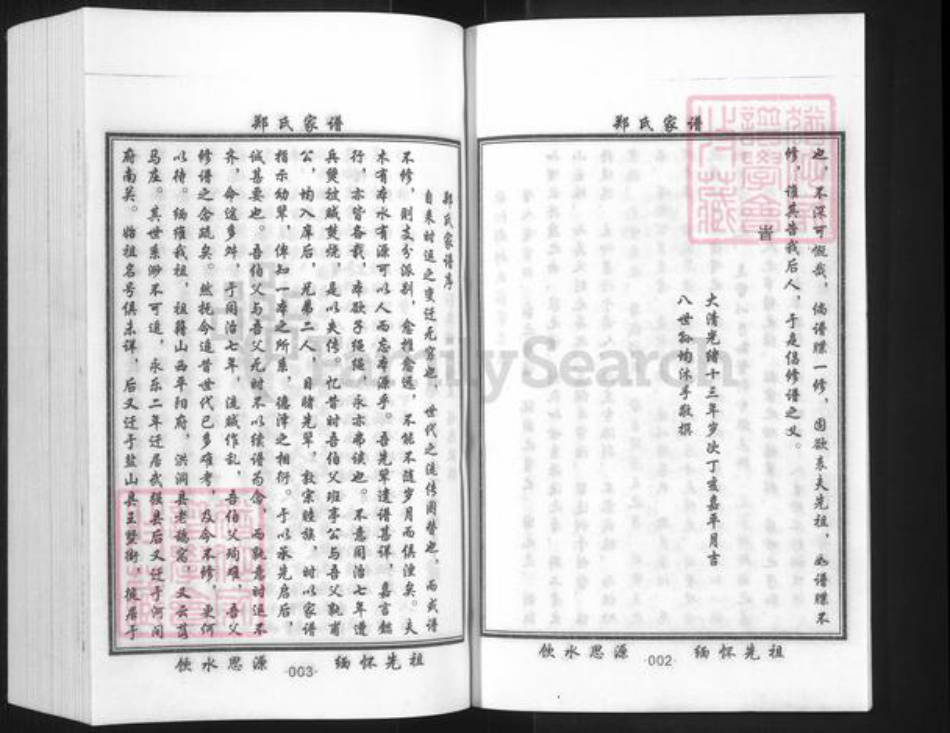 郑氏家谱
也，不深可慨哉，倘谱牒一修，固欲表夫先祖，如谱牒不
修，惟其告我后人，于是倡修谱之义。
旹
大清光绪十三年岁次丁亥嘉平月吉
八世孙均沐手敬撰
饮水思源
·002·
缅怀先祖
郑氏家谱
郑氏家谱序
自来时运之变迁无穷也，世代之流传罔替也，而或谱
不修，则支分派别，愈推愈远，不能不随岁月而俱湮矣。夫
木有本水有源可以人而忘本源乎。吾先辈遗谱甚详，嘉言懿
行，亦皆备载，本欲子绳绳，永亦弗谖也。不意同治七年遭
兵燹被贼焚烧，是以失传。忆昔时吾伯父班亭公与吾父执甫
公，均入庠后，兄弟二人，目睹先辈，敦宗睦族，时以家谱
指示幼辈，俾知一本之所系，德泽之相衍。于以承先启后，
诚甚要也。吾伯父与吾父无时不以续谱为念，而孰意时运不
齐，命途多舛，于同治七年，流贼作乱，吾伯父殉难，吾父
修谱之念疏矣。然抚今追昔世代已多难考，及今不修，更何
以待。缅维我祖，祖籍山西平阳府，洪洞县老鸹窝，又云
马庄。其世系渺不可追，永乐二年迁居武强县后又迁于河间
府南关。始祖名号俱未详，后又迁于盐山县王贤街，彼居于
饮水思源
·003·
缅怀先祖
FamilySearch